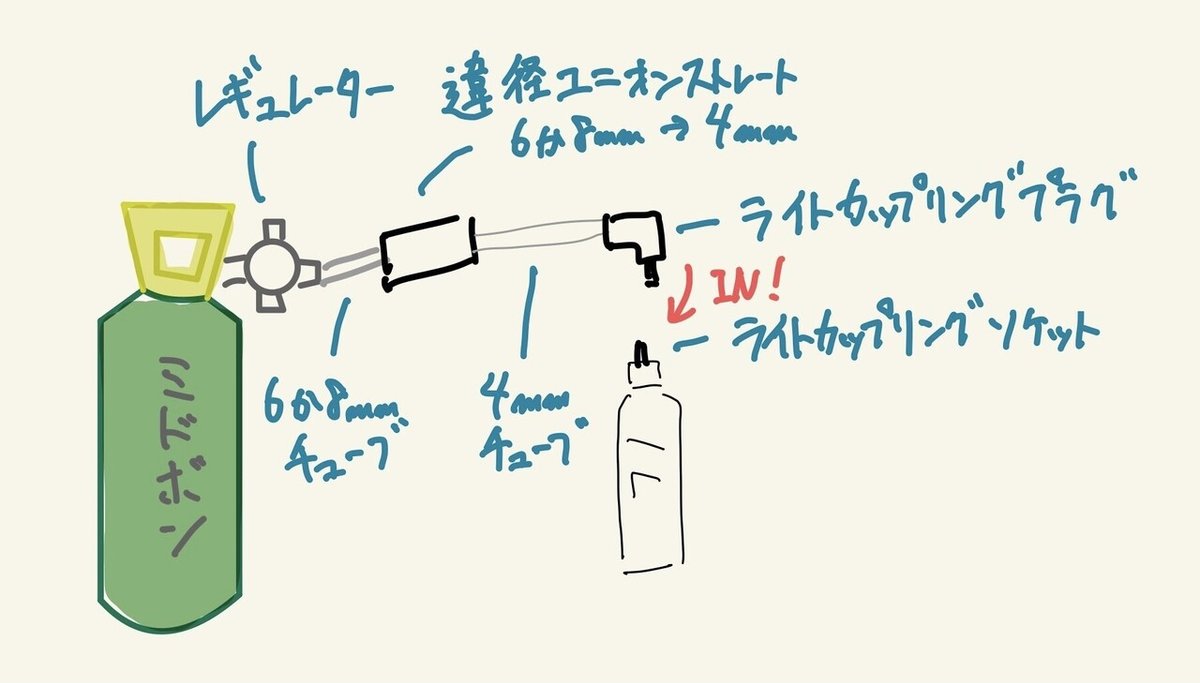 レギュレーター
違径ユニオンストレート
6か8mm→4mm
ライトカップリングプラグ
IN!
ライトカップリングソケット
6か8mm
チューブ
4mm
チューブ
ミドボン